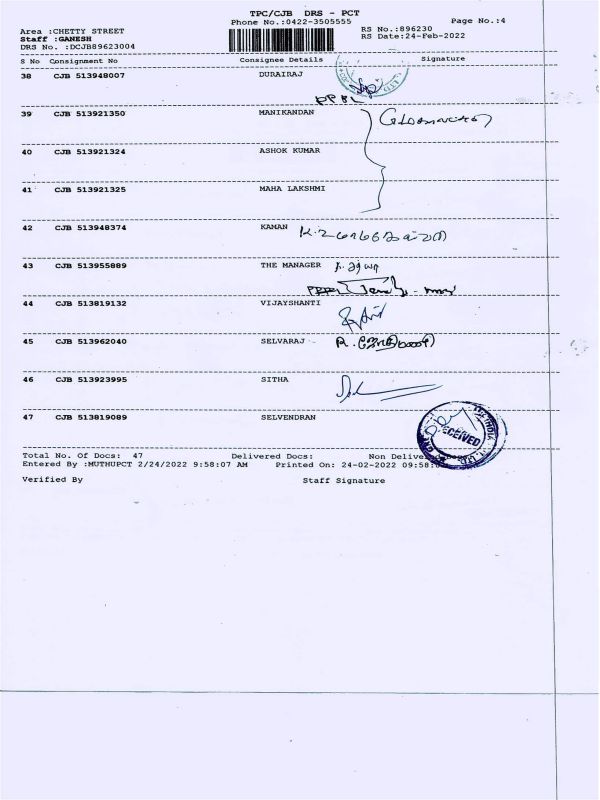 TPC/CJB DRS - PCT
Phone No.:0422-3505555
Page No.:4
Area :CHETTY STREET
RS No.:896230
Staff :GANESH
RS Date:24-Feb-2022
DRS No. :DCJB89623004
S No Consignment No Consignee Details Signature
38 CJB 513948007 DURAIRAJ
39 CJB 513921350 MANIKANDAN
40 CJB 513921324 ASHOK KUMAR
41 CJB 513921325 MAHA LAKSHMI
42 CJB 513948374 KAMAN
43 CJB 513955889 THE MANAGER
44 CJB 513819132 VIJAYSHANTI
45 CJB 513962040 SELVARAJ
46 CJB 513923995 SITHA
47 CJB 513819089 SELVENDRAN
Total No. Of Docs: 47 Delivered Docs: Non
Entered By :MUTHUPCT 2/24/2022 9:58:07 AM Printed On: 24-02-2022
Verified By Staff Signature